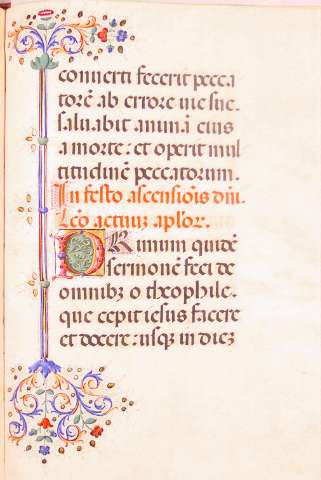 conuerti fecerit pecca
torē ab errore uie sue.
saluabit animā eius
a morte: et operit mul
titudinē peccatorum.
In festo ascensiōis dn̄i.
Lc̄o actuuꝫ apl'or.
PRimum quidē
sermonē feci de
omnibꝫ o theophile.
que cepit iesus facere
et docere: usqꝫ in dieꝫ